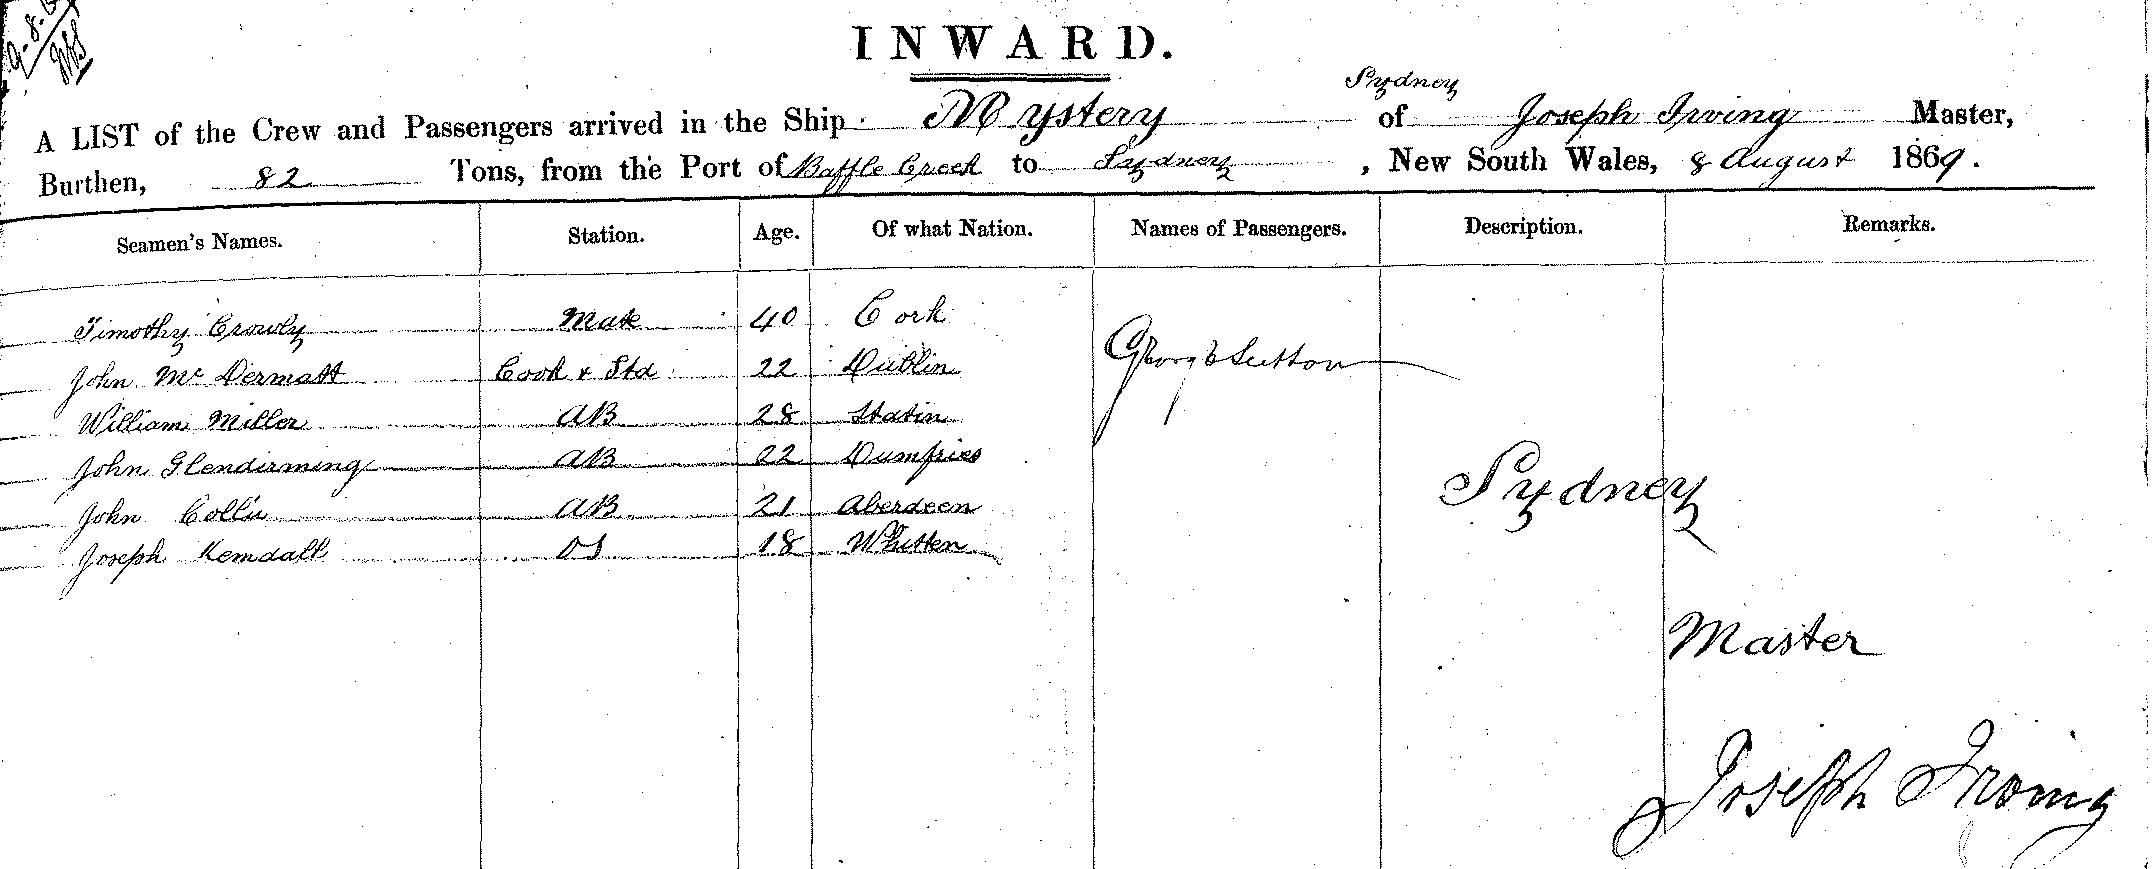 9-8-6
INWARD.
Sydney
A LIST of the Crew and Passengers arrived in the Ship Mystery of Joseph Irving Master,
Burthen, 82 Tons, from the Port of Baffle Creek to Sydney, New South Wales, 8 August 1869.
Seamen's Names. Station. Age. Of what Nation. Names of Passengers. Description. Remarks.
Timothy Crowly Mate 40 Cork
George Sutton
John McDermatt Cook & Std 22 Dublin
William Miller AB 28 Statin
John Glendirming AB 22 Dumfries
Sydney
John Collie AB 21 Aberdeen
Joseph Kemdall OS 18 Whitten
Master
Joseph Irving